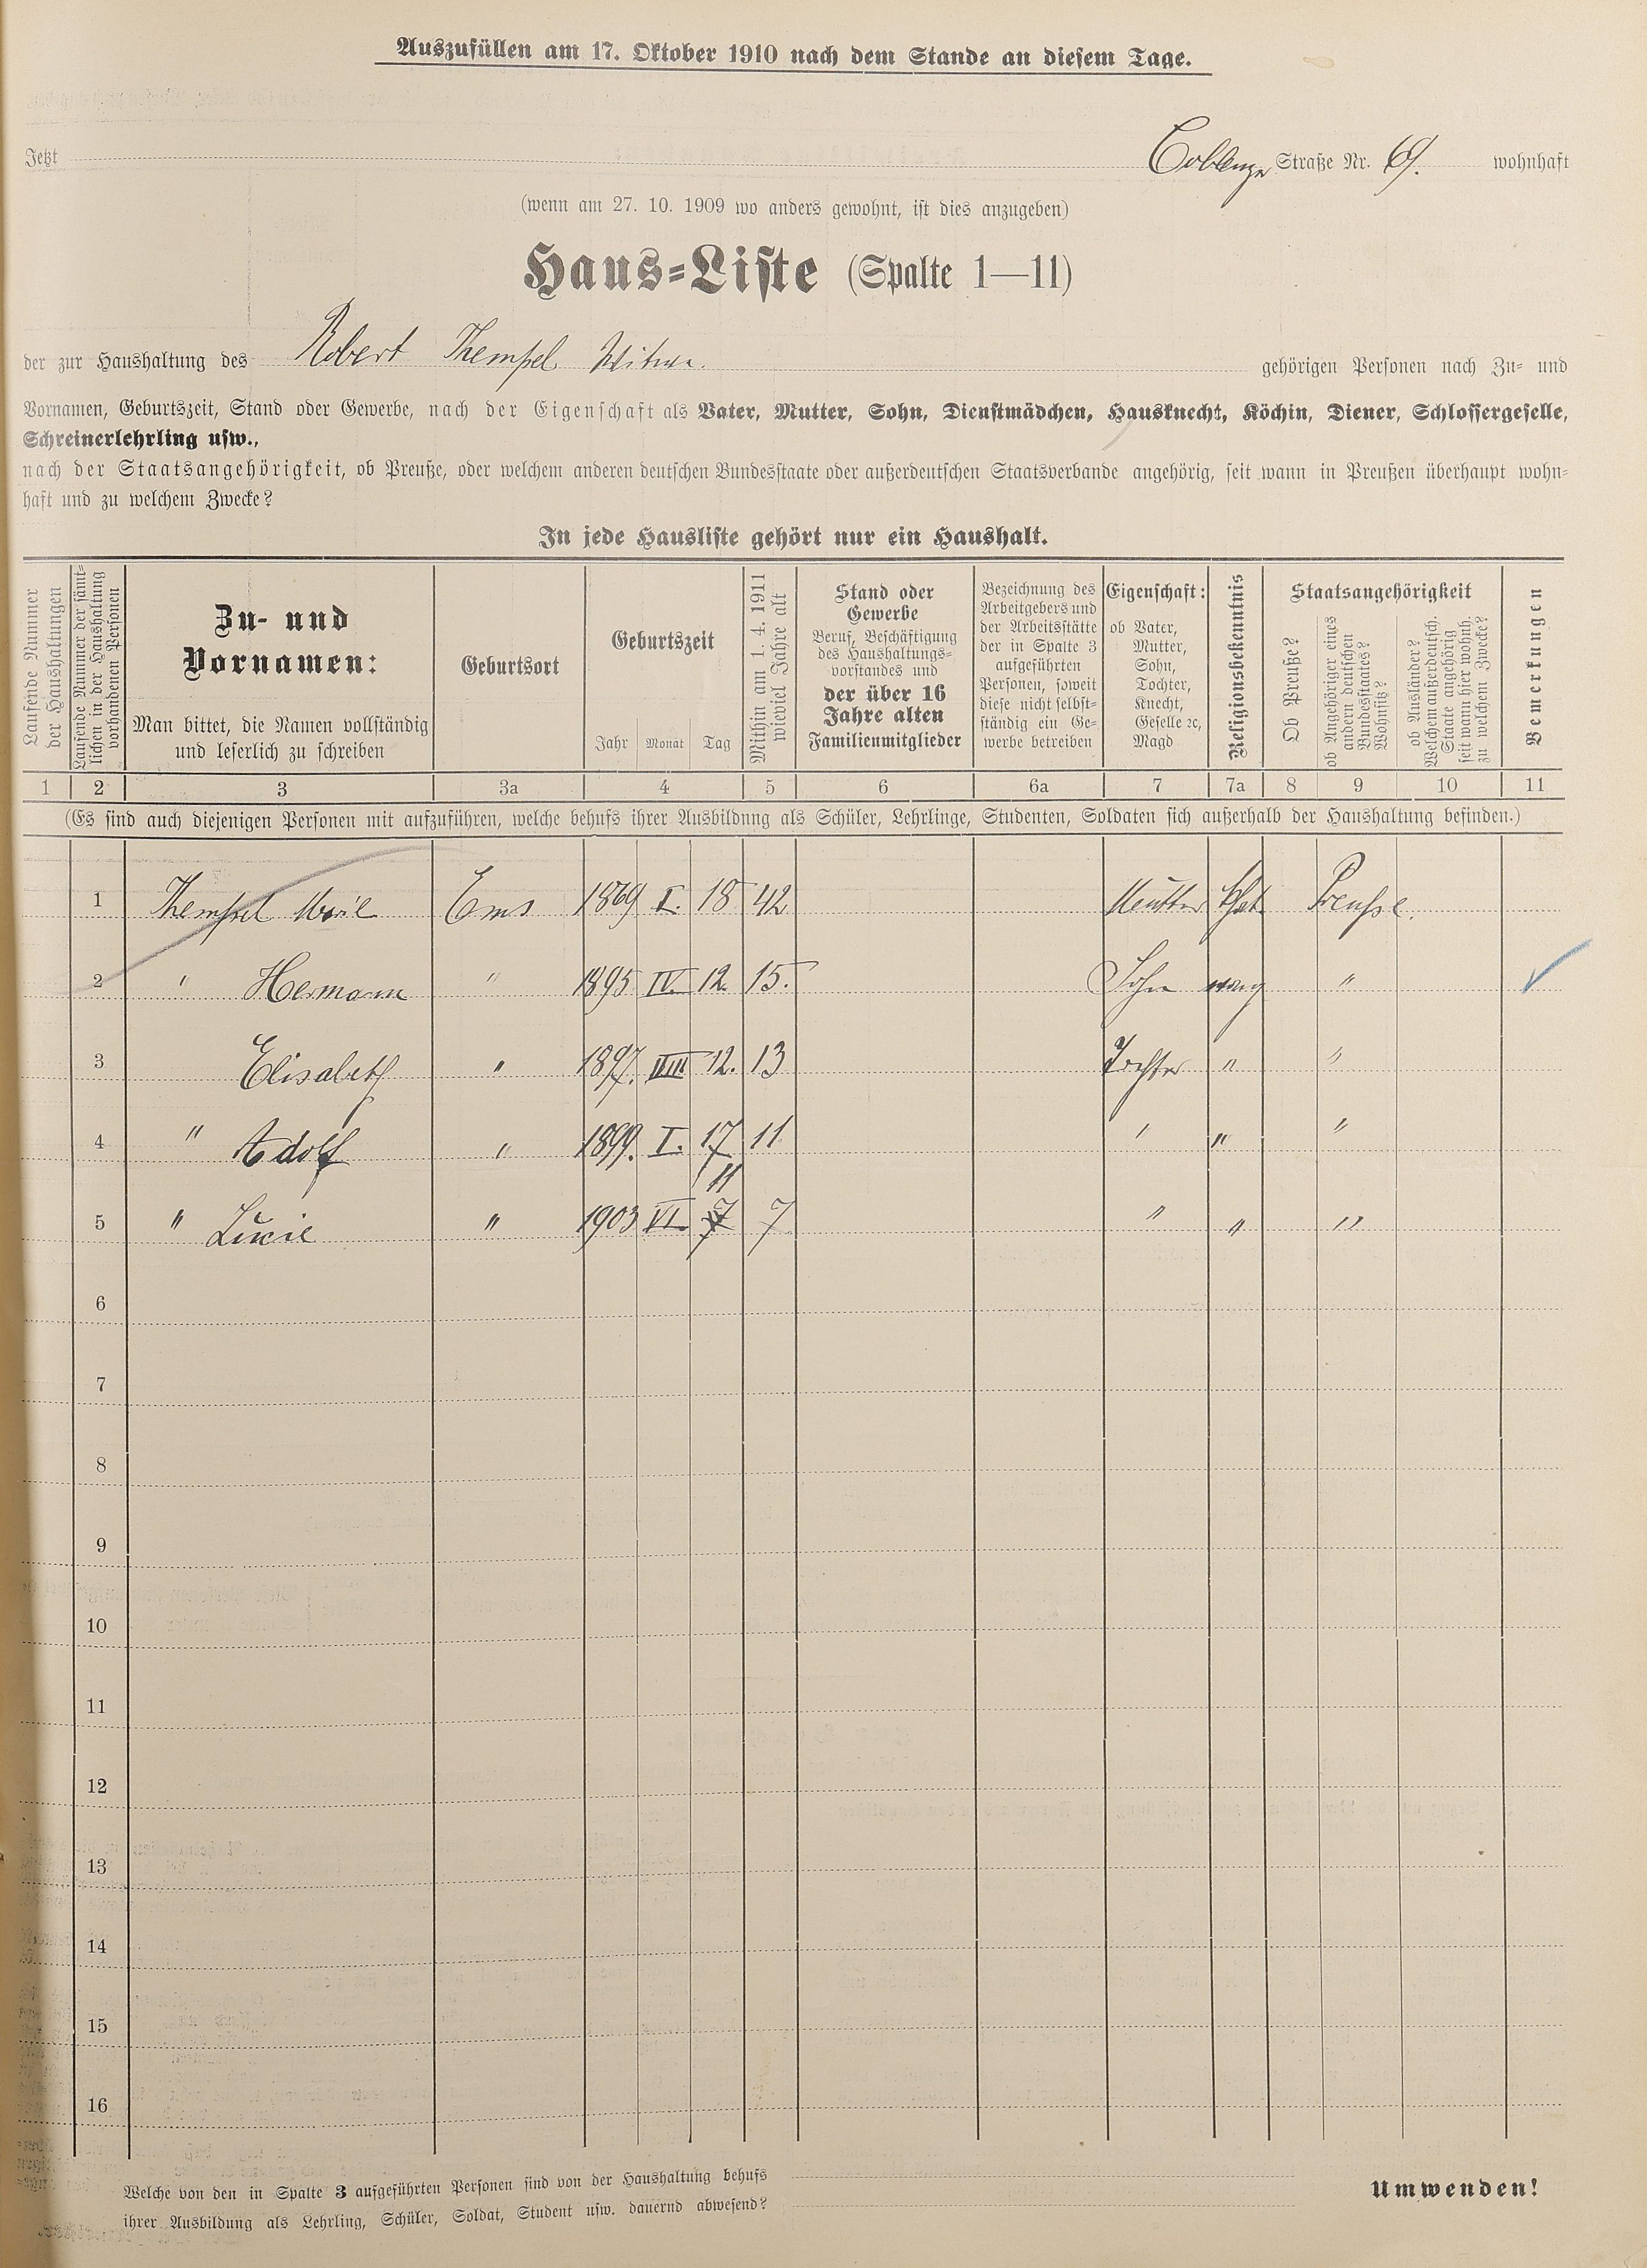 Auszufüllen am 17. Oktober 1910 nach dem Stande an diesem Tage.
Jetzt Coblenzer Straße Nr. 69. wohnhaft
(wenn am 27. 10. 1909 wo anders gewohnt, ist dies anzugeben)
Haus-Liste (Spalte 1—11)
der zur Haushaltung des Robert Thempel Witwe. gehörigen Personen nach Zu- und
Vornamen, Geburtszeit, Stand oder Gewerbe, nach der Eigenschaft als Vater, Mutter, Sohn, Dienstmädchen, Hausknecht, Köchin, Diener, Schlossergeselle,
Schreinerlehrling usw.,
nach der Staatsangehörigkeit, ob Preuße, oder welchem anderen deutschen Bundesstaate oder außerdeutschen Staatsverbande angehörig, seit wann in Preußen überhaupt wohn-
haft und zu welchem Zwecke?
In jede Hausliste gehört nur ein Haushalt.
Laufende Nummer
der Haushaltungen
Laufende Nummer der sämt-
lichen in der Haushaltung
vorhandenen Personen
Zu- und
Vornamen:
Man bittet, die Namen vollständig
und leserlich zu schreiben
Geburtsort
Geburtszeit
Jahr Monat Tag
Mithin am 1. 4. 1911
wieviel Jahre alt
Stand oder
Gewerbe
Beruf, Beschäftigung
des Haushaltungs-
vorstandes und
der über 16
Jahre alten
Familienmitglieder
Bezeichnung des
Arbeitgebers und
der Arbeitsstätte
der in Spalte 3
aufgeführten
Personen, soweit
diese nicht selbst-
ständig ein Ge-
werbe betreiben
Eigenschaft:
ob Vater,
Mutter,
Sohn,
Tochter,
Knecht,
Geselle ꝛc,
Magd
Religionsbekenntnis
Staatsangehörigkeit
Ob Preuße?
ob Angehöriger eines
andern deutschen
Bundesstaates?
Wohnsitz?
ob Ausländer?
Welchem außerdeutsch.
Staate angehörig
seit wann hier wohnh.
zu welchem Zwecke?
Bemerkungen
1 2 3 3a 4 5 6 6a 7 7a 8 9 10 11
(Es sind auch diejenigen Personen mit aufzuführen, welche behufs ihrer Ausbildung als Schüler, Lehrlinge, Studenten, Soldaten sich außerhalb der Haushaltung befinden.)
1 Thempel Marie Ems 1869 I. 18 42 Mutter Kath. Preuße.
2 " Hermann " 1895 IV. 12. 15. Sohn evang "
3 Elisabeth " 1897. IIII 12. 13 Tochter " "
4 " Adolf " 1899. I. 17 11 " " "
5 " Lucie " 1903 VI. 11 7 " " "
6
7
8
9
10
11
12
13
14
15
16
Welche von den in Spalte 3 aufgeführten Personen sind von der Haushaltung behufs
ihrer Ausbildung als Lehrling, Schüler, Soldat, Student usw. dauernd abwesend?
Umwenden!